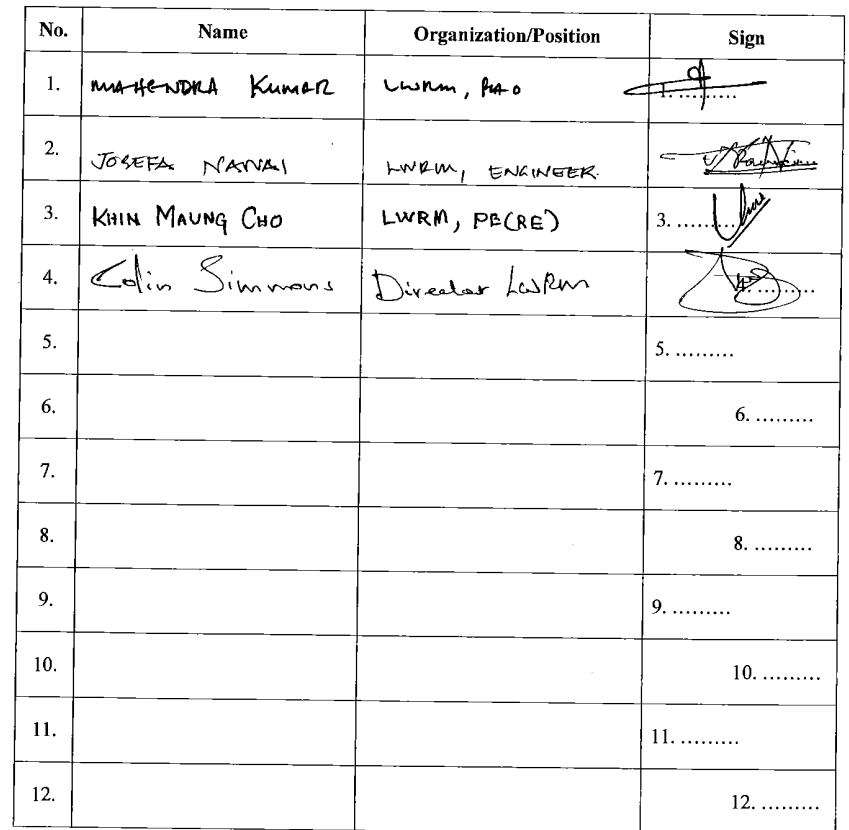 No. Name Organization/Position Sign
1. MAHENDRA KUMAR LWRM, 1. .........
2. JOSEFA NAWAI LWRM, ENGINEER
3. KHIN MAUNG CHO LWRM, PE(RE) 3. .........
4. Colin Simmons Director LWRM 4. .........
5. 5. .........
6. 6. .........
7. 7. .........
8. 8. .........
9. 9. .........
10. 10. .........
11. 11. .........
12. 12. .........